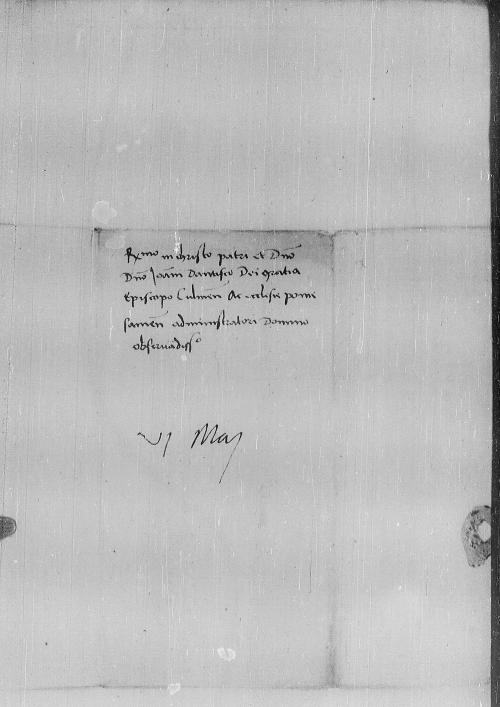 Rxmo in christo patri et Dno
Dno Joani Dantisco Dei gratia
Episcopo Culmen Ac ecclesie pome
samen administratori Domino
observadisso
vj Maj